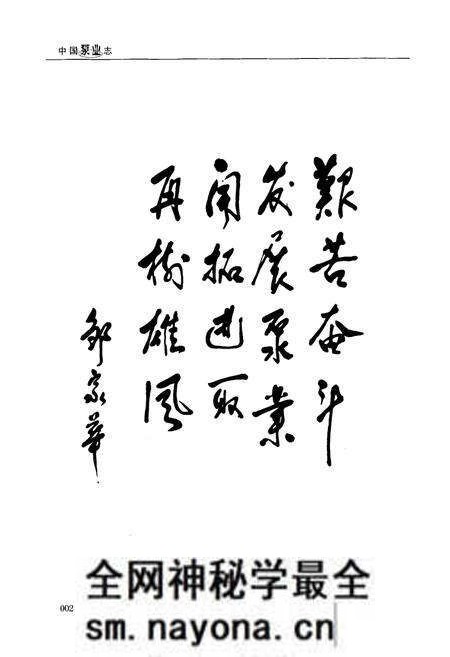 中国泵业志
艰苦奋斗
发展泵业
开拓进取
再树雄风
邹家华
全网神秘学最全
002
sm.nayona.cn